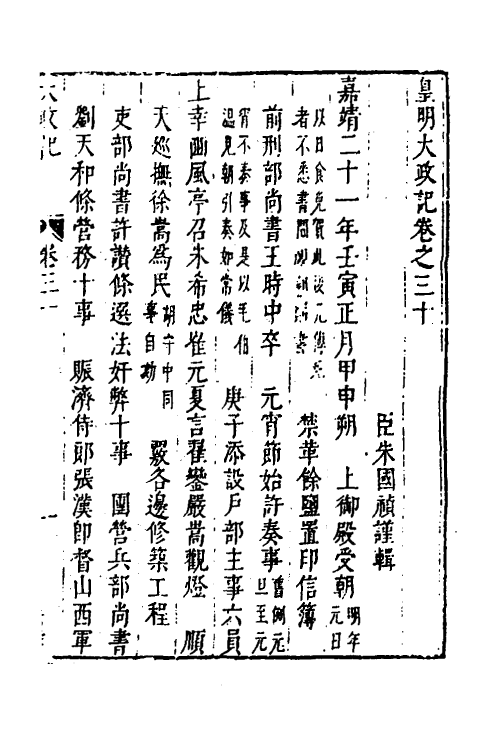 皇明大政記卷之三十
臣朱國禎謹輯
嘉靖二十一年壬寅正月甲申朔　上御殿受朝明年元日
以日食免賀此後元傳至者不悉書間
禁革餘鹽置印信簿
前刑部尚書王時中卒　元宵節始許奏事舊例元旦至元
宵不奏事及是以毛伯溫見朝引奏如常儀　庚子添設戶部主事六員
上幸豳風亭召朱希忠崔元夏言翟鑾嚴嵩觀燈　順
天巡撫徐嵩為民胡守中同事自劾　覈各邊修築工程
吏部尚書許讚條選法奸弊十事　團營兵部尚書
劉天和條營務十事　賑濟侍郎張漢即督山西軍
大政記　卷三十　一